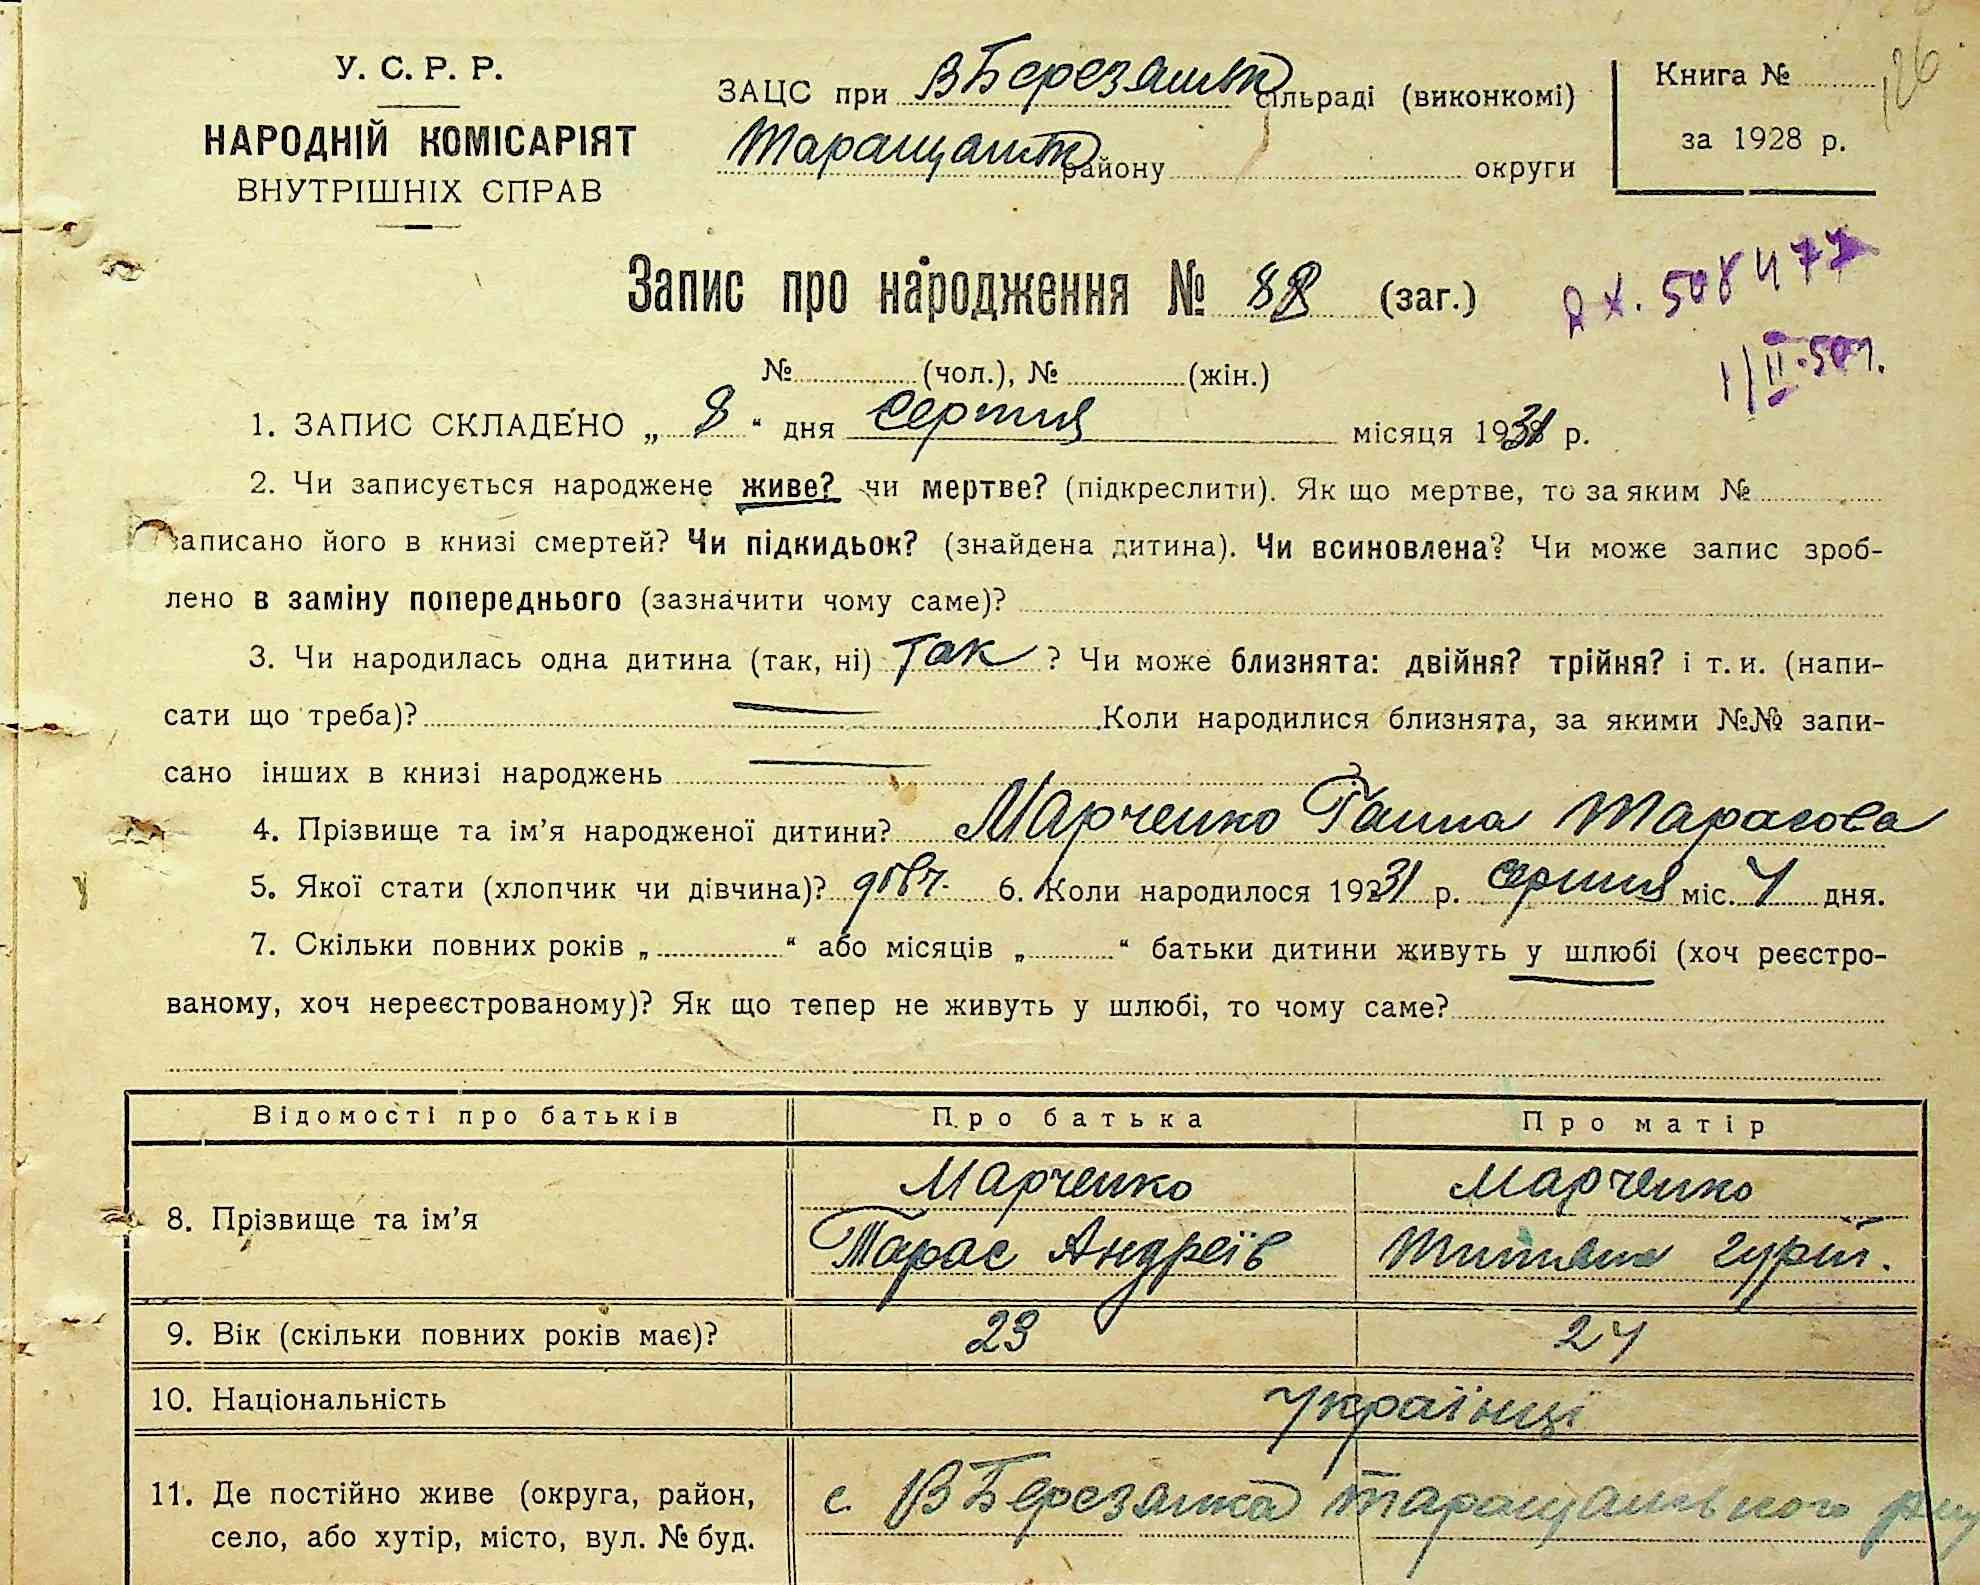 У. С. Р. Р.
НАРОДНІЙ КОМІСАРІЯТ
ВНУТРІШНІХ СПРАВ
ЗАЦС при ВБерезянськ сільраді (виконкомі)
Таращанськ району округи
Книга №
за 1928 р.
126
Запис про народження № 88 (заг.)
1/II-50
№ (чол.), № (жін.)
1. ЗАПИС СКЛАДЕНО „ 8 “ дня серпня місяця 1931 р.
2. Чи записується народжене живе? чи мертве? (підкреслити). Як що мертве, то за яким №
записано його в книзі смертей? Чи підкидьок? (знайдена дитина). Чи всиновлена? Чи може запис зроб-
лено в заміну попереднього (зазначити чому саме)?
3. Чи народилась одна дитина (так, ні) Так ? Чи може близнята: двійня? трійня? і т. и. (напи-
сати що треба)? Коли народилися близнята, за якими №№ запи-
сано інших в книзі народжень
4. Прізвище та ім’я народженої дитини? Марченко Ганна Тарасова
5. Якої стати (хлопчик чи дівчина)? дівч. 6. Коли народилося 1931 р. серпня міс. 4 дня.
7. Скільки повних років „ “ або місяців „ “ батьки дитини живуть у шлюбі (хоч реєстро-
ваному, хоч нереєстрованому)? Як що тепер не живуть у шлюбі, то чому саме?
Відомості про батьків Про батька Про матір
8. Прізвище та ім’я Марченко Марченко
Тарас Андреїв Титяна Гурій.
9. Вік (скільки повних років має)? 23 24
10. Національність Українці
11. Де постійно живе (округа, район, с. ВБерезянка Таращанського
село, або хутір, місто, вул. № буд.